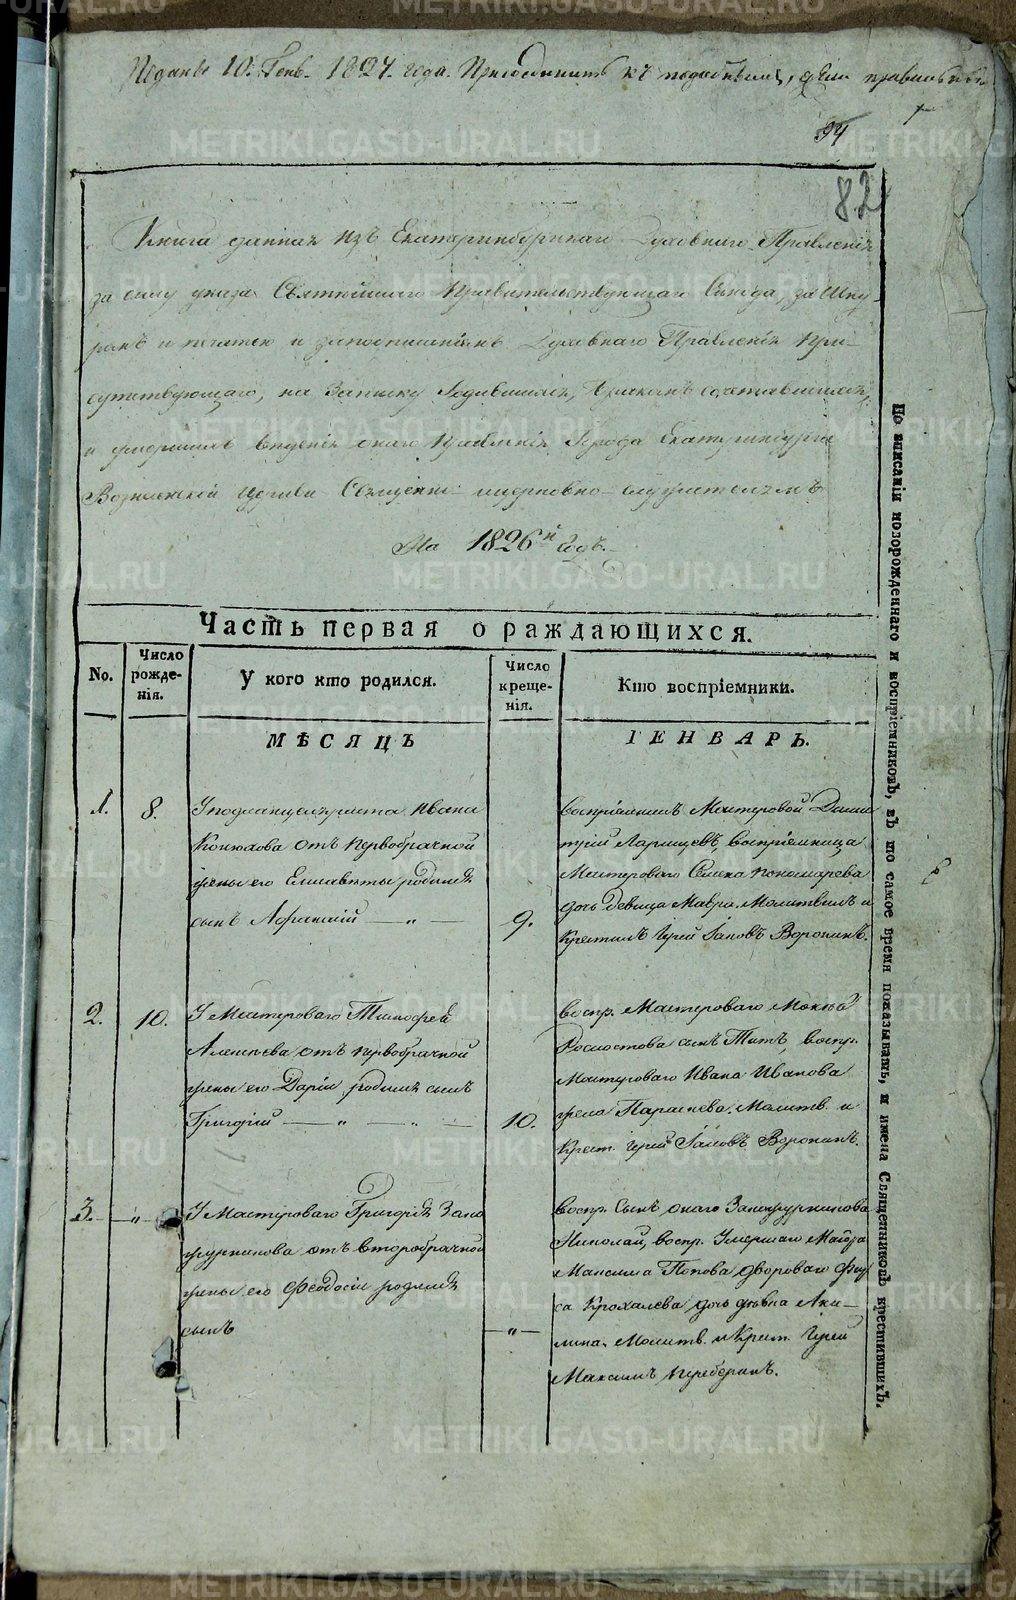 Поданы 10. Генв. 1827. года. Присоединить къ подобнымъ,
94
82
Книга данная изъ Екатеринбургскаго Духовнаго Правленія
за силу указа Святѣйшаго Правительствующаго Сѵнода, за шну-
ромъ и печатью и заподписаніемъ Духовнаго Правленія При-
сутствующаго, на Записку Родившихся, Бракомъ сочетавшихся,
и умершихъ вѣденія онаго Правленія Города Екатеринбурга
Вознесенской Церкви Священно-церковно-служителямъ
На 1826й Годъ.
Часть первая о раждающихся.
No.
Число рожде-нія.
У кого кто родился.
Число креще-нія.
Кто воспріемники.
МѢСЯЦЪ
ГЕНВАРЬ.
1.
8.
У подканцеляриста Ивана
Конюхова отъ первобрачной
жены его Елисаветы родился
сынъ Афанасій — „
9.
Воспріемникъ Мастеровой Дими
трій Ларищевъ, воспріемница
Мастероваго Семена Пономарева
дочь девица Мавра. Молитвилъ и
Крестилъ Іерей Іаковъ Воронинъ.
2.
10.
У Мастероваго Тимофея
отъ первобрачной
жены его Даріи родился сынъ
Григорій — „ — „ —
10.
воспр. Мастероваго Мокѣя
сынъ Титъ, воспр.
Мастероваго Ивана Иванова
жена Параскева. Молитв. и
Крест. Іерей Іаковъ Воронинъ.
3.
— „ —
У Мастероваго Григорія Запо
журникова отъ второбрачной
жены его Феодосіи родился
сынъ
— „ —
воспр. Сынъ онаго
Николай, воспр. Умершаго Маіора
Максима Попова двороваго Фир
са Крохалева дочь дѣвка Аки-
лина. Молитв. и Крест. Іерей
Максимъ
По вписаніи новорожденнаго и воспріемниковъ, въ то самое время показывать, и имена Священниковъ крестившихъ.
METRIKI.GASO-URAL.RU